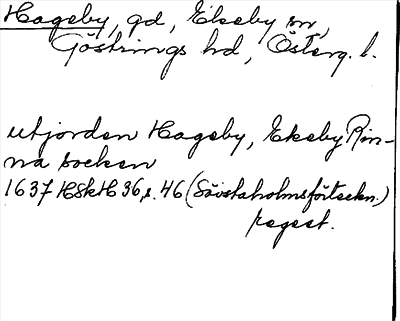 Hageby, gd, Ekeby sn,
Göstrings hd, Österg. l.
utjorden Hageby, Ekeby Rin-
na socken
1637 HSkH 36, s. 46 (Säbstaholmsförteckn.)
regest.